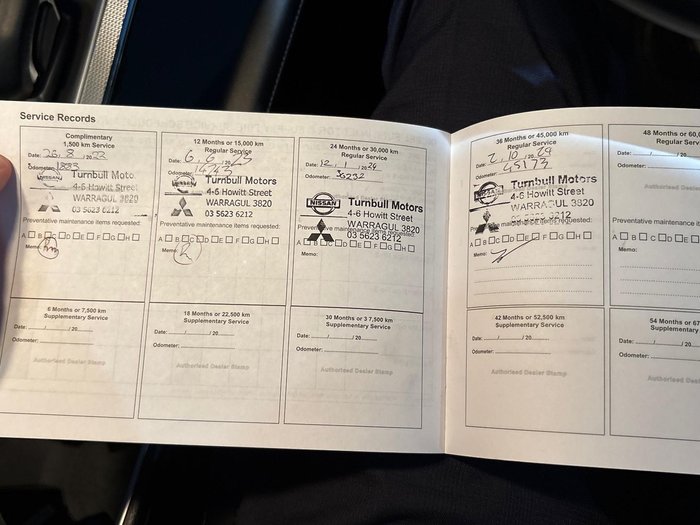 Service Records
Complimentary
1,500 km Service
Date: 26.8./20
Odometer: 1883
NISSAN Turnbull Moto
4-6 Howitt Street
WARRAGUL 3820
03 5623 6212
Preventative maintenance items requested:
A B C D E F G H
Memo:
12 Months or 15,000 km
Regular Service
Date: 6, 6, /20 23
Odometer:
Turnbull Motors
4-6 Howitt Street
WARRAGUL 3820
03 5623 6212
Preventative maintenance items requested:
A B C D E F G H
Memo:
24 Months or 30,000 km
Regular Service
Date: 12, 1, /20 24
Odometer: 36232
NISSAN Turnbull Motors
4-6 Howitt Street
WARRAGUL 3820
03 5623 6212
Preventative maintenance items requested
A B C D E F G H
36 Months or 45,000 km
Regular Service
Date: 2, 10, /20 24
Odometer: 45173
NISSAN Turnbull Motors
4-6 Howitt Street
WARRAGUL 3820
03 5623 3212
Preventative maintenance items requested:
A B C D E F G H
Memo:
48 Months or 60,
Regular Serv
Date: / /20
Odometer:
Authorised Dealer
Preventative maintenance
A B C D E
Memo:
6 Months or 7,500 km
Supplementary Service
Date: / /20
Odometer:
Authorised Dealer Stamp
18 Months or 22,500 km
Supplementary Service
Date: / /20
Odometer:
Authorised Dealer Stamp
30 Months or 3 7,500 km
Supplementary Service
Date: / /20
Odometer:
Authorised Dealer Stamp
42 Months or 52,500 km
Supplementary Service
Date: / /20
Odometer:
Authorised Dealer Stamp
54 Months or 67
Supplementary
Date: / /20
Odometer:
Authorised Dealer